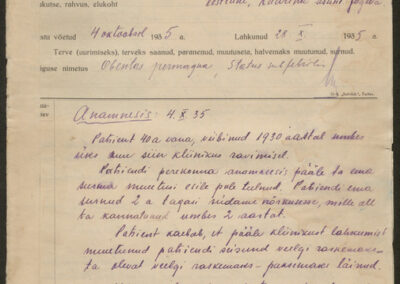 kutse, rahvus, elukoht
stu võetud 4 oktoobril 1935 a. Lahkunud 28 X 1935 a.
Terve (uurimiseks), terveks saanud, paranenud, muutuseta, halvemaks muutunud, surnud.
iguse nimetus Obesitas permagna, Status subfebrilis
Anamnesis: 4. X 35
Patient 40 a vana, viibinud 1930 aastal umbes
üks kuu siin kliinikus ravimisel.
Patiendi perekonna anamneesis pääle ta ema
surma muutusi esile pole tulnud. Patiendi ema
surnud 2 a tagasi südame nõrkusesse, mille all
ta kannatanud umbes 2 aastat.
Patient kaebab, et pääle kliinikust lahkumist
muutunud patiendi seisund veelgi raskemaks
ta olevat veelgi raskemaks - paksemaks läinud.